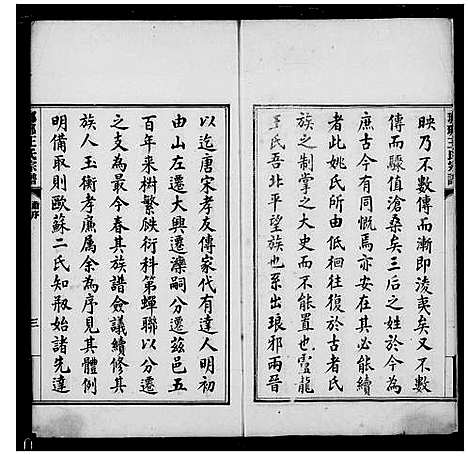 琅琊王氏宗譜
映乃不數傳而漸即淩夷矣又不數
傳而驟值滄桑矣三后之姓於今為
庶古今有同慨焉亦安在其必能續
者此姚氏所由低徊往復於古者氏
族之制掌之大史而不能置也盧龍
王氏吾北平望族也系出琅邪兩晉
以迄唐宋孝友傳家代有達人明初
由山左遷大興遷灤嗣分遷茲邑五
百年来樹繁胅衍科第蟬聯以分遷
之支為最今春其族譜僉議續修其
族人玉衡孝廉屬余為序見其體例
明備取則歐蘇二氏知刱始諸先達
琅琊王氏宗譜
序
三